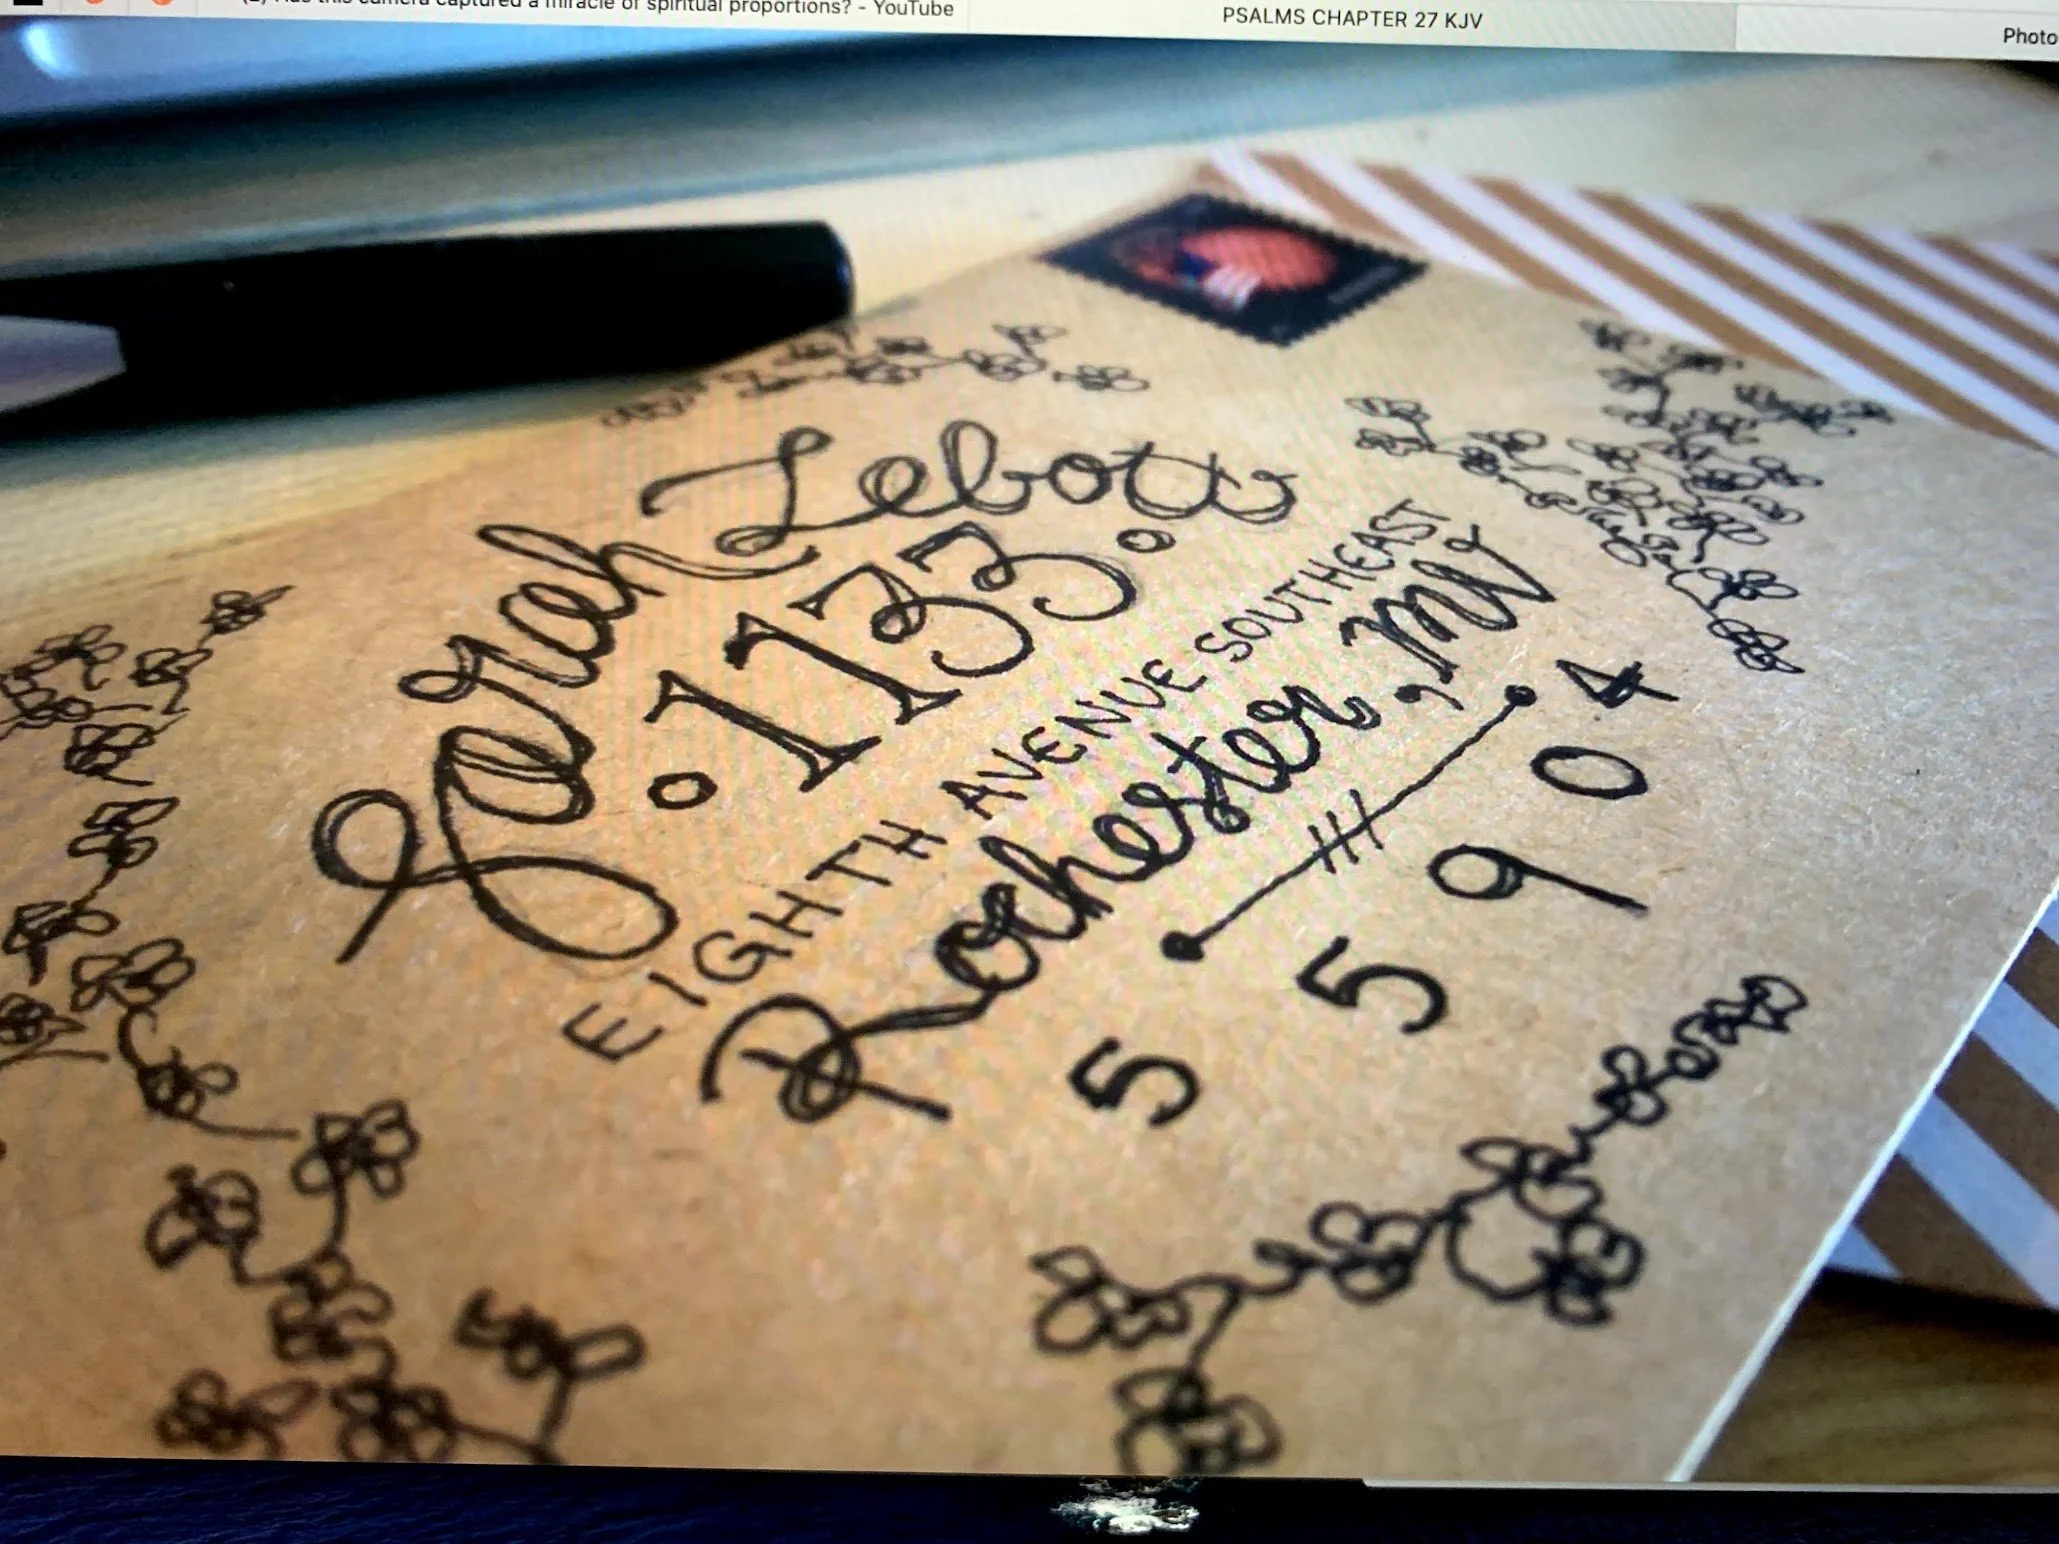 (2) Has this camera captured a miracle of spiritual proportions? - YouTube
PSALMS CHAPTER 27 KJV
Photo
Sarah Lebow
.1133.
EIGHTH AVENUE SOUTHEAST
Rochester, MN
55904